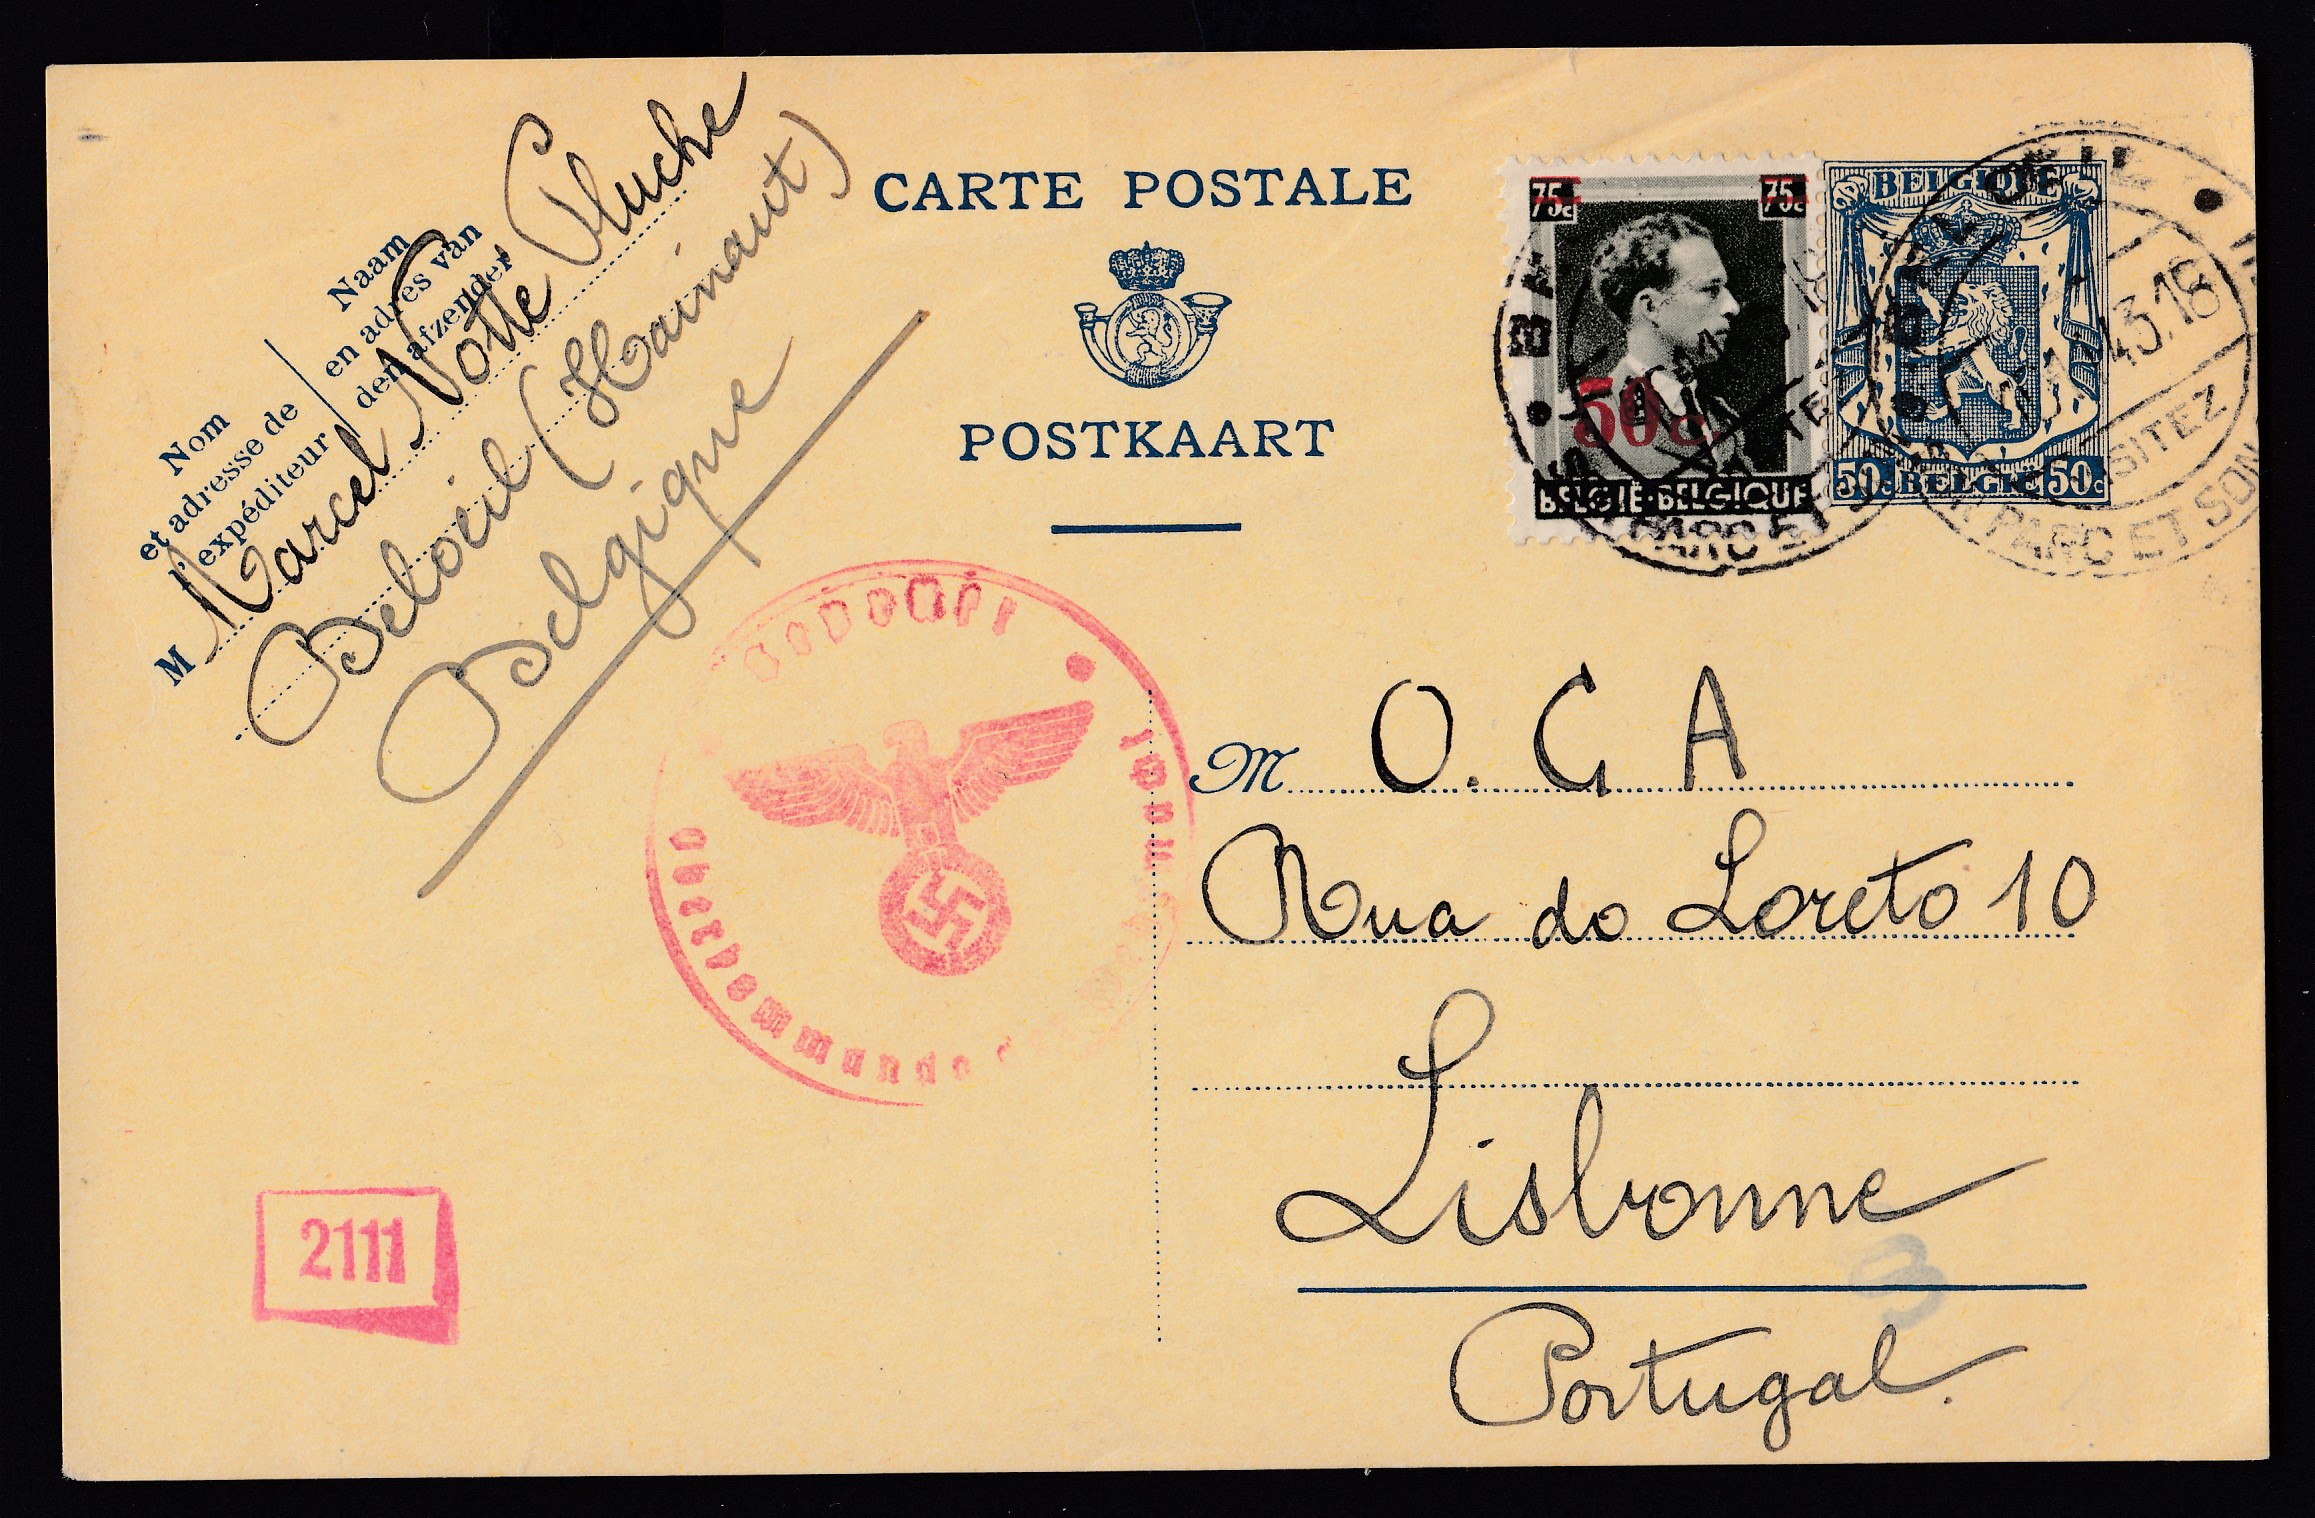 Nom
et adresse de
l'expéditeur
Naam
en adres van
den afzender
M Marcel Notte Pluche
Beloeil (Hainaut)
Belgique
CARTE POSTALE
POSTKAART
75c 75c
50c
BELGIË-BELGIQUE
BELGIQUE
50c BELGIË 50c
43.18
VISITEZ
PARC ET SON
PARC ET
Oberkommando
2111
M O. C A
Rua do Loreto 10
Lisbonne
Portugal.